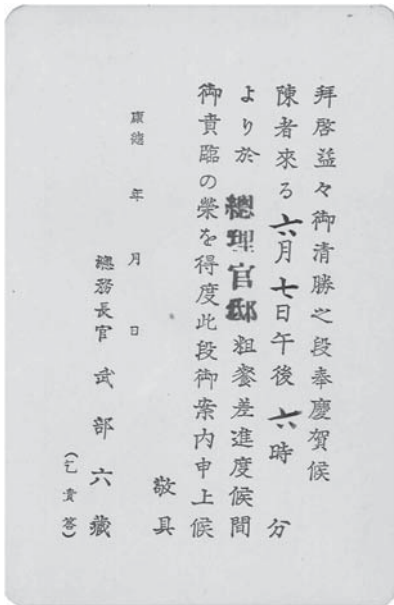 拜啓益々御淸勝之段奉慶賀候
陳者來る六月七日午後六時　分
より於總理官邸粗餐差進度候間
御貴臨の榮を得度此段御案內申上候
敬具
康德　年　月　日
總務長官　武部六藏
（乞貴答）